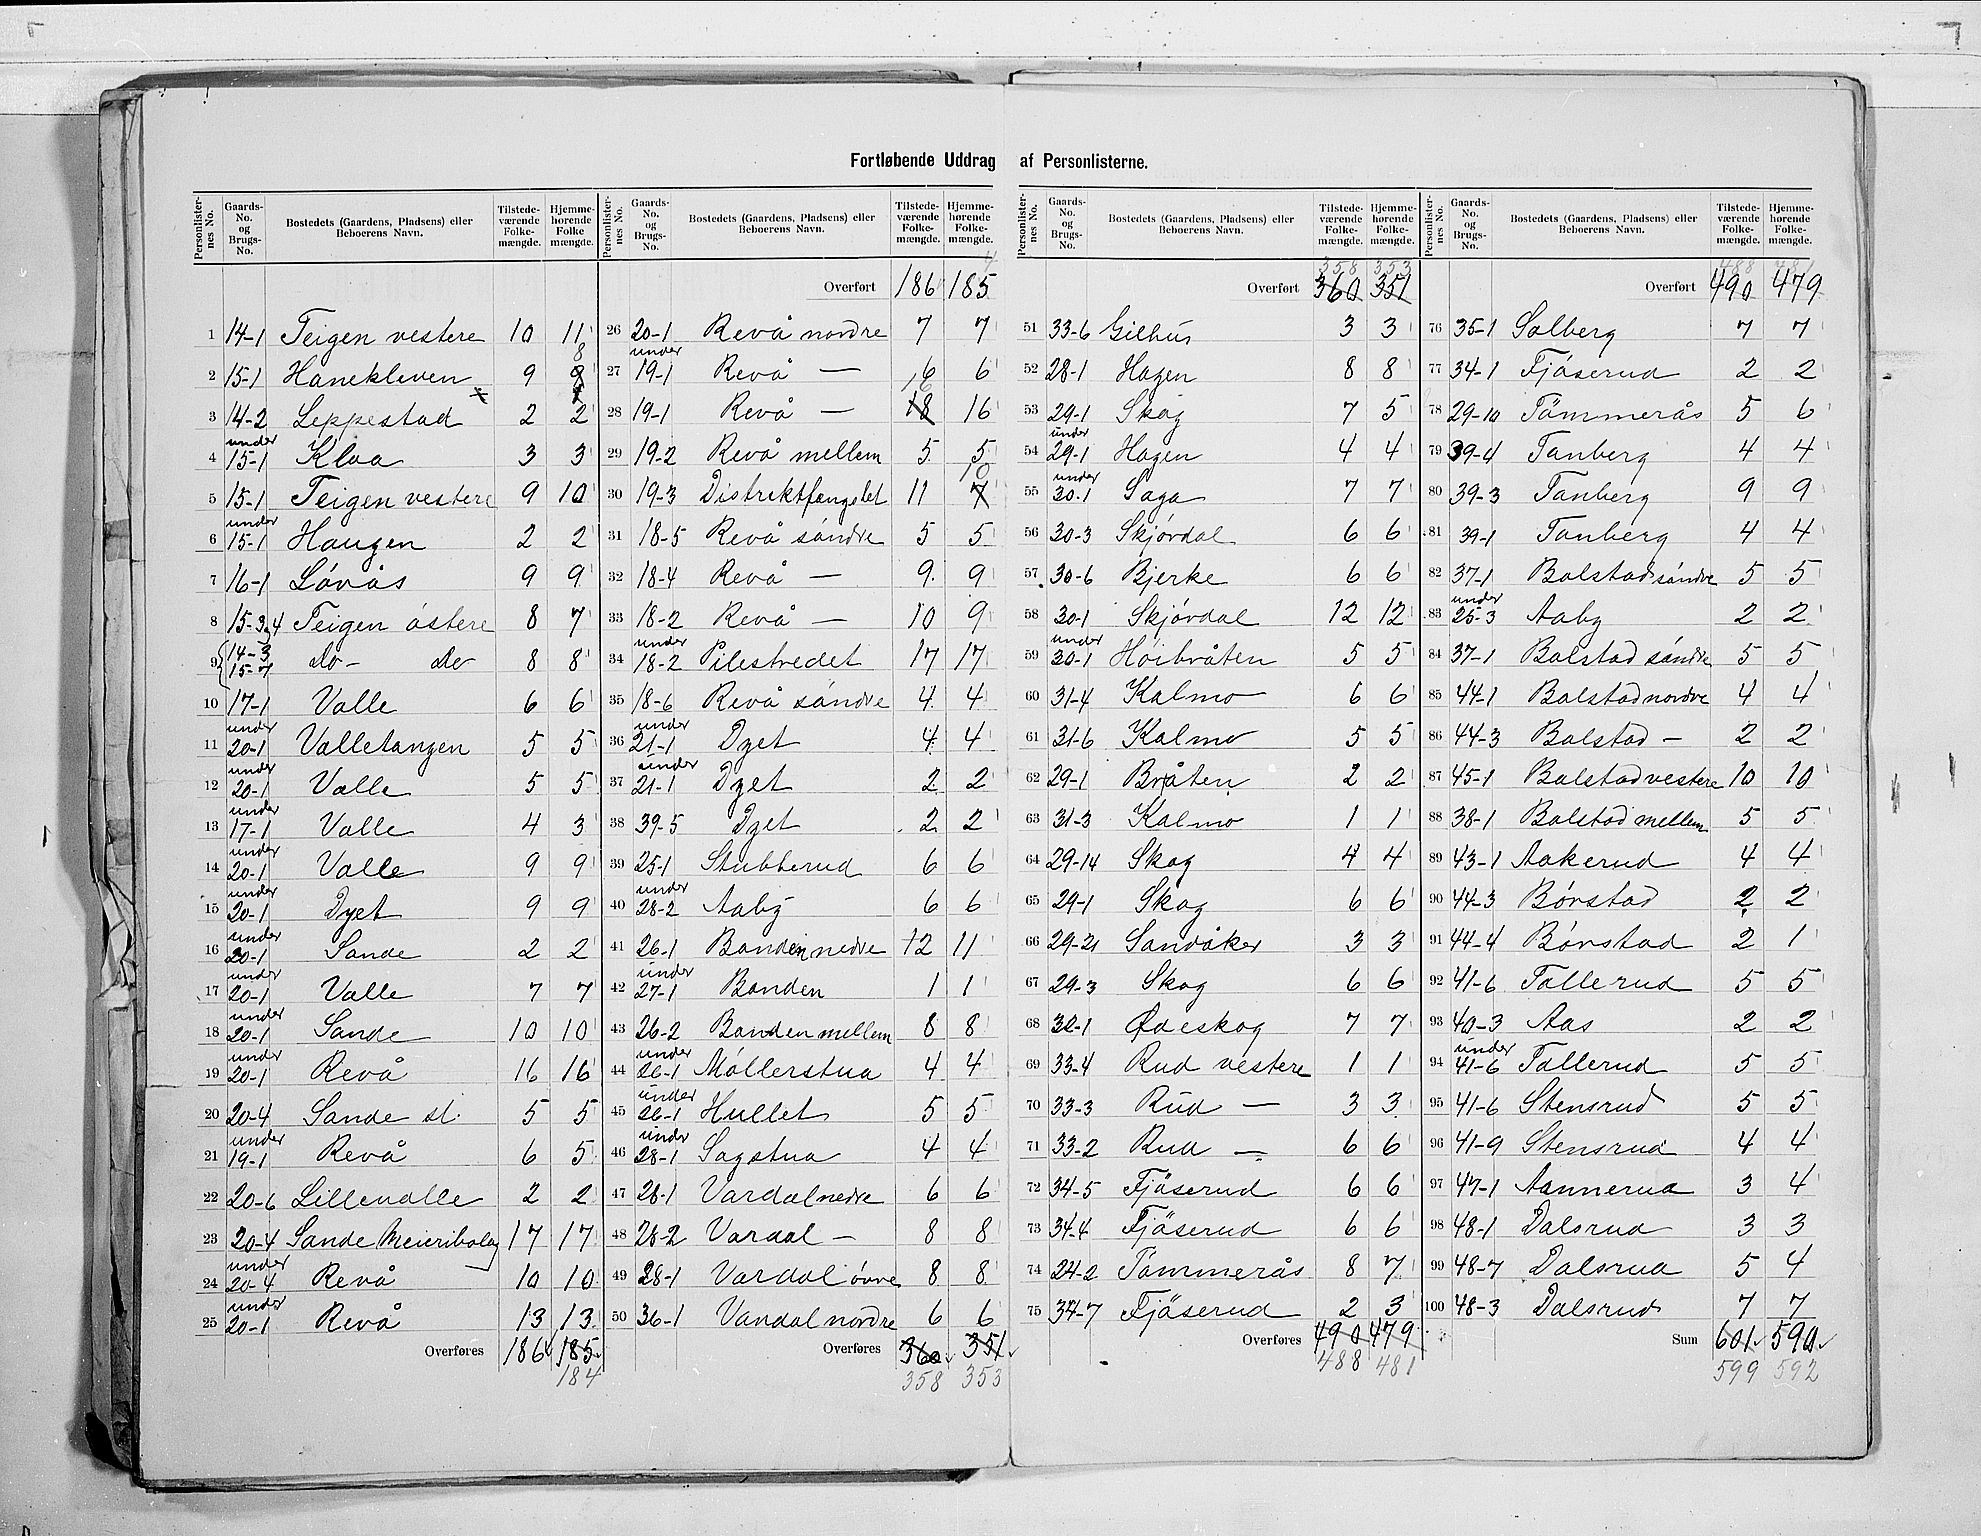 Fortløbende Uddrag af Personlisterne.
Personlisternes No. | Gaards-No. og Brugs-No. | Bostedets (Gaardens, Pladsens) eller Beboerens Navn. | Tilstedeværende Folkemængde. | Hjemmehørende Folkemængde.
1 14-1 Teigen vestere 10 11
2 15-1 Hanekleven 9 9 8
3 14-2 Leppestad 2 2
4 under 15-1 Kloa 3 3
5 15-1 Teigen vestere 9 10
6 under 15-1 Haugen 2 2
7 16-1 Løvås 9 9
8 15-3,4 Teigen østere 8 7
9 14-3 15-7 Do- Do 8 8
10 17-1 Valle 6 6
11 under 20-1 Valletangen 5 5
12 under 20-1 Valle 5 5
13 under 17-1 Valle 4 3
14 under 20-1 Valle 9 9
15 under 20-1 Dyet 9 9
16 under 20-1 Sande 2 2
17 under 20-1 Valle 7 7
18 under 20-1 Sande 10 10
19 under 20-1 Revå 16 16
20 20-4 Sande st. 5 5
21 under 19-1 Revå 6 5
22 20-6 Lillevalle 2 2
23 20-4 Sande Meieribolag 17 17
24 under 20-4 Revå 10 10
25 under 20-1 Revå 13 13
Overføres 186 185
184
Overført 186 185 4
26 20-1 Revå nordre 7 7
27 under 19-1 Revå — 6 6
28 19-1 Revå — 18 16 16
29 19-2 Revå mellem 5 5
30 19-3 Distriktfængslet 11 7 10
31 18-5 Revå søndre 5 5
32 18-4 Revå — 9 9
33 18-2 Revå — 10 9
34 under 18-2 Pilestredet 17 17
35 18-6 Revå søndre 4 4
36 under 21-1 Dyet 4 4
37 under 21-1 Dyet 2 2
38 39-5 Dyet 2 2
39 25-1 Stubberud 6 6
40 under 28-2 Aaby 6 6
41 26-1 Banden nedre 12 11
42 under 27-1 Banden 1 1
43 26-2 Banden mellem 8 8
44 under 26-1 Møllerstua 4 4
45 under 26-1 Hullet 5 5
46 under 28-1 Sagstua 4 4
47 28-1 Vardal nedre 6 6
48 28-2 Vardal — 8 8
49 28-1 Vardal øvre 8 8
50 36-1 Vardal nordre 6 6
Overføres 360 351
358 353
358 353
Overført 360 351
51 33-6 Gilhus 3 3
52 28-1 Hagen 8 8
53 29-1 Skog 7 5
54 under 29-1 Hagen 4 4
55 under 30-1 Saga 7 7
56 30-3 Skjørdal 6 6
57 30-6 Bjerke 6 6
58 30-1 Skjørdal 12 12
59 under 30-1 Høibråten 5 5
60 31-4 Kalmo 6 6
61 31-6 Kalmo 5 5
62 29-1 Bråten 2 2
63 31-3 Kalmo 1 1
64 29-14 Skog 4 4
65 29-1 Skog 6 6
66 29-21 Sandåker 3 3
67 29-3 Skog 6 6
68 32-1 Ødeskog 7 7
69 33-4 Rud vestere 1 1
70 33-3 Rud — 3 3
71 33-2 Rud — 6 6
72 34-5 Fjøserud 6 6
73 34-4 Fjøserud 6 6
74 24-2 Tømmerås 8 7
75 34-7 Fjøserud 2 3
Overføres 490 479
488 481
488 481
Overført 490 479
76 35-1 Solberg 7 7
77 34-1 Fjøserud 2 2
78 29-10 Tømmerås 5 6
79 39-4 Tanberg 4 4
80 39-3 Tanberg 9 9
81 39-1 Tanberg 4 4
82 37-1 Bolstad søndre 5 5
83 under 25-3 Aaby 2 2
84 37-1 Bolstad søndre 5 5
85 44-1 Bolstad nordre 4 4
86 44-3 Bolstad — 2 2
87 45-1 Bolstad vestere 10 10
88 38-1 Bolstad mellem 5 5
89 43-1 Aakerud 4 4
90 44-3 Børstad 2 2
91 44-4 Børstad 2 1
92 41-6 Tollerud 5 5
93 40-3 Aas 2 2
94 under 41-6 Tollerud 5 5
95 41-6 Stensrud 5 5
96 41-9 Stensrud 4 4
97 47-1 Aannerud 3 4
98 48-1 Dalsrud 3 3
99 48-7 Dalsrud 5 4
100 48-3 Dalsrud 7 7
Sum 601 590
599 592